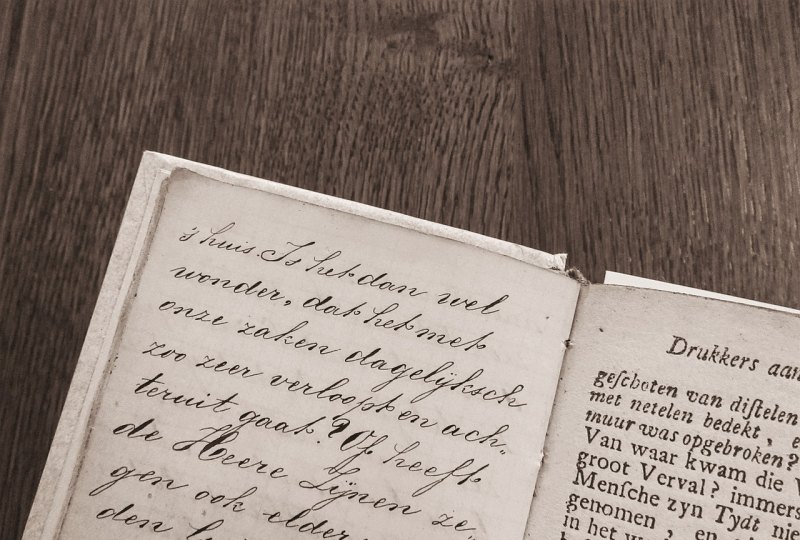 's huis. Is het dan wel
wonder, dat het met
onze zaken dagelijksch
zoo zeer verloopt en ach„
teruit gaat? Of heeft
de Heere Zijnen ze„
gen ook elder
den
Drukkers aan
geſchoten van diſtelen
met netelen bedekt, e
muur was opgebroken?
Van waar kwam die V
groot Verval? immers
Menſche zyn Tydt nie
genomen, en
in het w